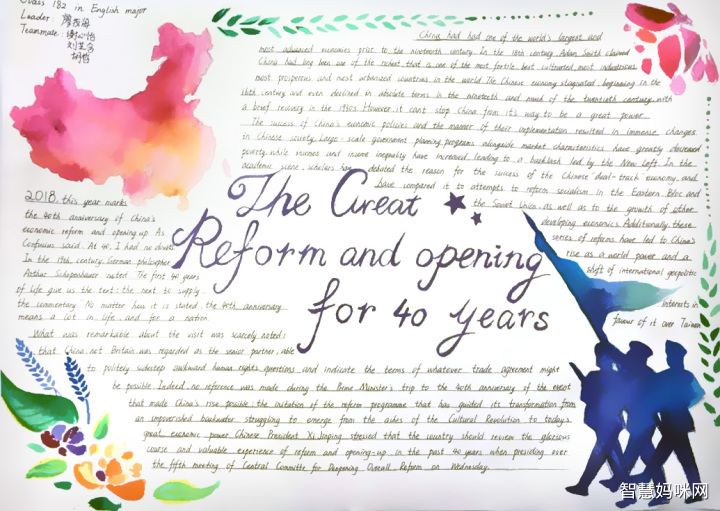 Class 182 in English major
Leader:
Teammate:
China had had one of the world's largest and
most advanced economies prior to the nineteenth century. In the 18th century, Adam Smith claimed
China had long been one of the richest, that is, one of the most fertile, best cultivated, most industrious,
most prosperous and most urbanized countries in the world. The Chinese economy stagnated beginning in the
16th century and even declined in absolute terms in the nineteenth and much of the twentieth century, with
a brief recovery in the 1930s. However, it can't stop China from it's way to be a great power.
The success of China's economic policies and the manner of their implementation resulted in immense changes
in Chinese society. Large-scale government planning programs alongside market characteristics have greatly decreased
poverty, while incomes and income inequality have increased, leading to a backlash led by the New Left. In the
academic scene, scholars have debated the reason for the success of the Chinese "dual-track" economy, and
have compared it to attempts to reform socialism in the Eastern Bloc and
the Soviet Union, as well as to the growth of other
developing economics. Additionally, these
series of reforms have led to China's
rise as a world power and a
shift of international geopolitic
interests in
favour of it over Taiwan
The Great
Reform and opening
for 40 years
2018, this year marks
the 40th anniversary of China's
economic reform and opening-up. As
Confucius said: At 40, I had no doubts
In the 19th century, German philosopher
Arthur Schopenhauer noted: The first 40 years
of life give us the text: the next 30 supply
the commentary. No matter how it is stated, the 40th anniversary
means a lot in life, and for a nation.
What was remarkable about the visit was scarcely noted:
that China, not Britain was regarded as the senior partner, able
to politely sidestep awkward human rights questions and indicate the terms of whatever trade agreement might
be possible. Indeed, no reference was made during the Prime Minister's trip to the 40th anniversary of the event
that made China's rise possible: the initiation of the reform programme that has guided its transformation from
an impoverished backwater struggling to emerge from the ashes of the Cultural Revolution to today's
great economic power. Chinese President Xi Jinping stressed that the country should review the glorious
course and valuable experience of reform and opening-up in the past 40 years when presiding over
the fifth meeting of Central Committe for Deepening Overall Reform on Wednesday.
智慧妈咪网